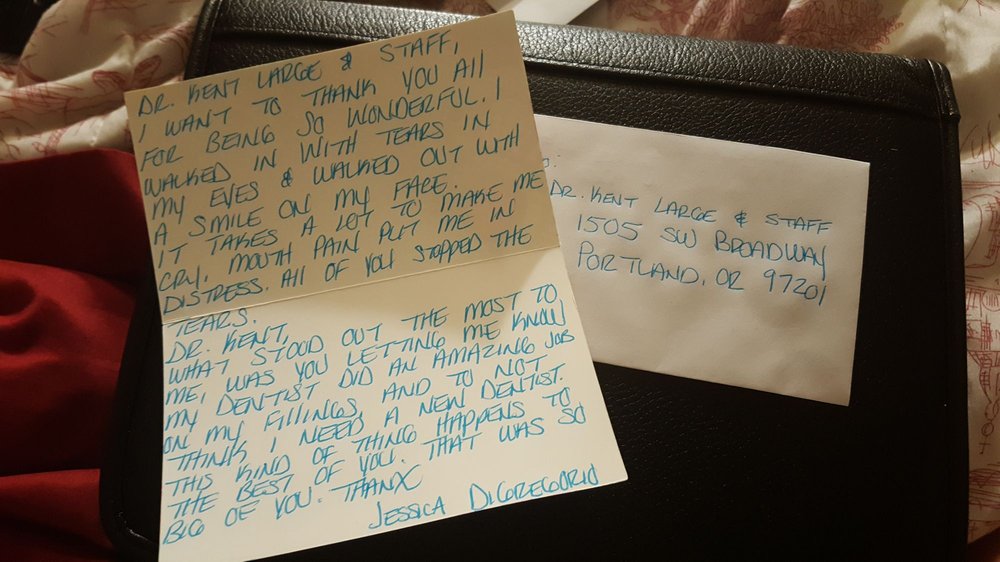 DR. KENT LARGE & STAFF,
I WANT TO THANK YOU ALL
FOR BEING SO WONDERFUL. I
WALKED IN WITH TEARS IN
MY EYES & WALKED OUT WITH
A SMILE ON MY FACE.
IT TAKES A LOT TO MAKE ME
CRY, MOUTH PAIN PUT ME IN
DISTRESS. All OF YOU STOPPED THE
TEARS.
DR. KENT,
WHAT STOOD OUT THE MOST TO
ME, WAS YOU LETTING ME KNOW
MY DENTIST DID AN AMAZING JOB
ON MY FILLINGS, AND TO NOT
THINK I NEED A NEW DENTIST.
THIS KIND OF THING HAPPENS TO
THE BEST OF YOU. THAT WAS SO
BIG OF YOU. THANX
JESSICA DIGREGORIO
TO:
DR. KENT LARGE & STAFF
1505 SW BROADWAY
PORTLAND, OR 97201